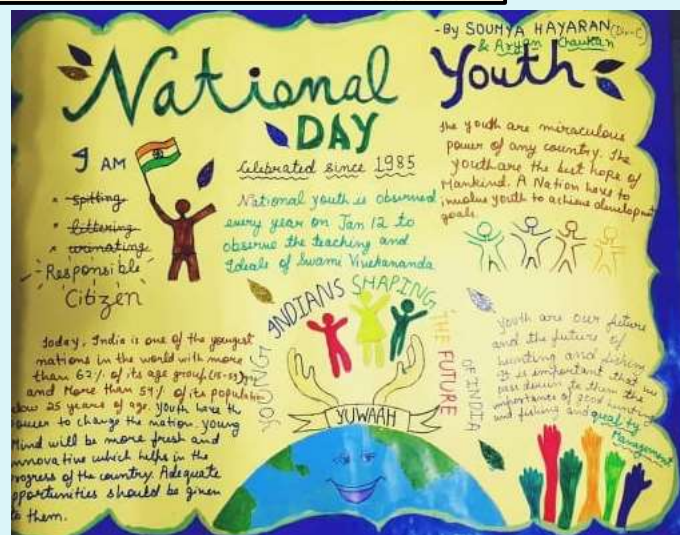 -By SOUMYA HAYARAN (Div-C)
& Aryan Chauhan
National Youth
DAY
Celebrated since 1985
I AM
• spitting
• littering
• urinating
Responsible
Citizen
National youth is observed
every year on Jan 12 to
observe the teaching and
Ideals of Swami Vivekananda
The youth are miraculous
power of any country. The
youth are the best hope of
Mankind. A Nation have to
involve youth to achieve development
goals.
YOUNG INDIANS SHAPING THE FUTURE OF INDIA
YUWAAH
Today, India is one of the youngest
nations in the world with more
than 62% of its age group (15-59) yrs
and More than 54% of its population
below 25 years of age. Youth have the
power to change the nation. young
Mind will be more fresh and
innovative which helps in the
progress of the country. Adequate
opportunities should be given
to them.
youth are our future
and the future of
hunting and fishing
is important that we
pass down to them the
importance of good hunting
and fishing and quality
Management